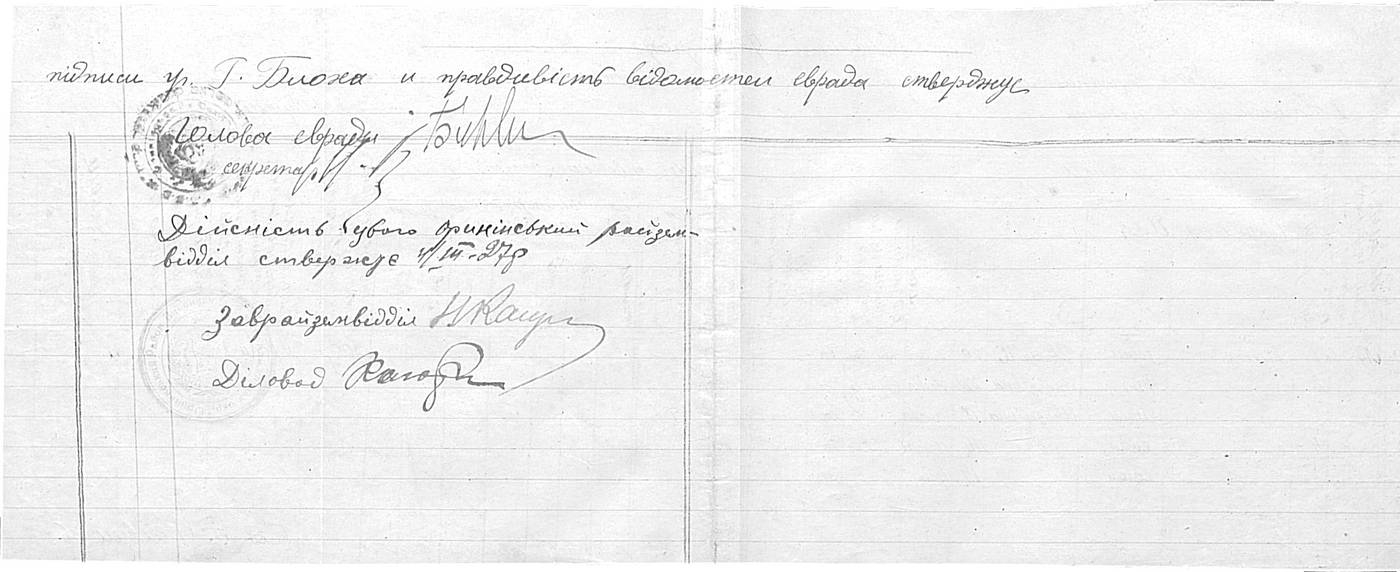 підписи гр. Г. Блоха и правдивість відомостей єврада стверджує
Голова євради
секретар
Дійсність цього фрикінський райзем-
відділ ствержує 4/III-27р
Заврайземвідділ
Діловод